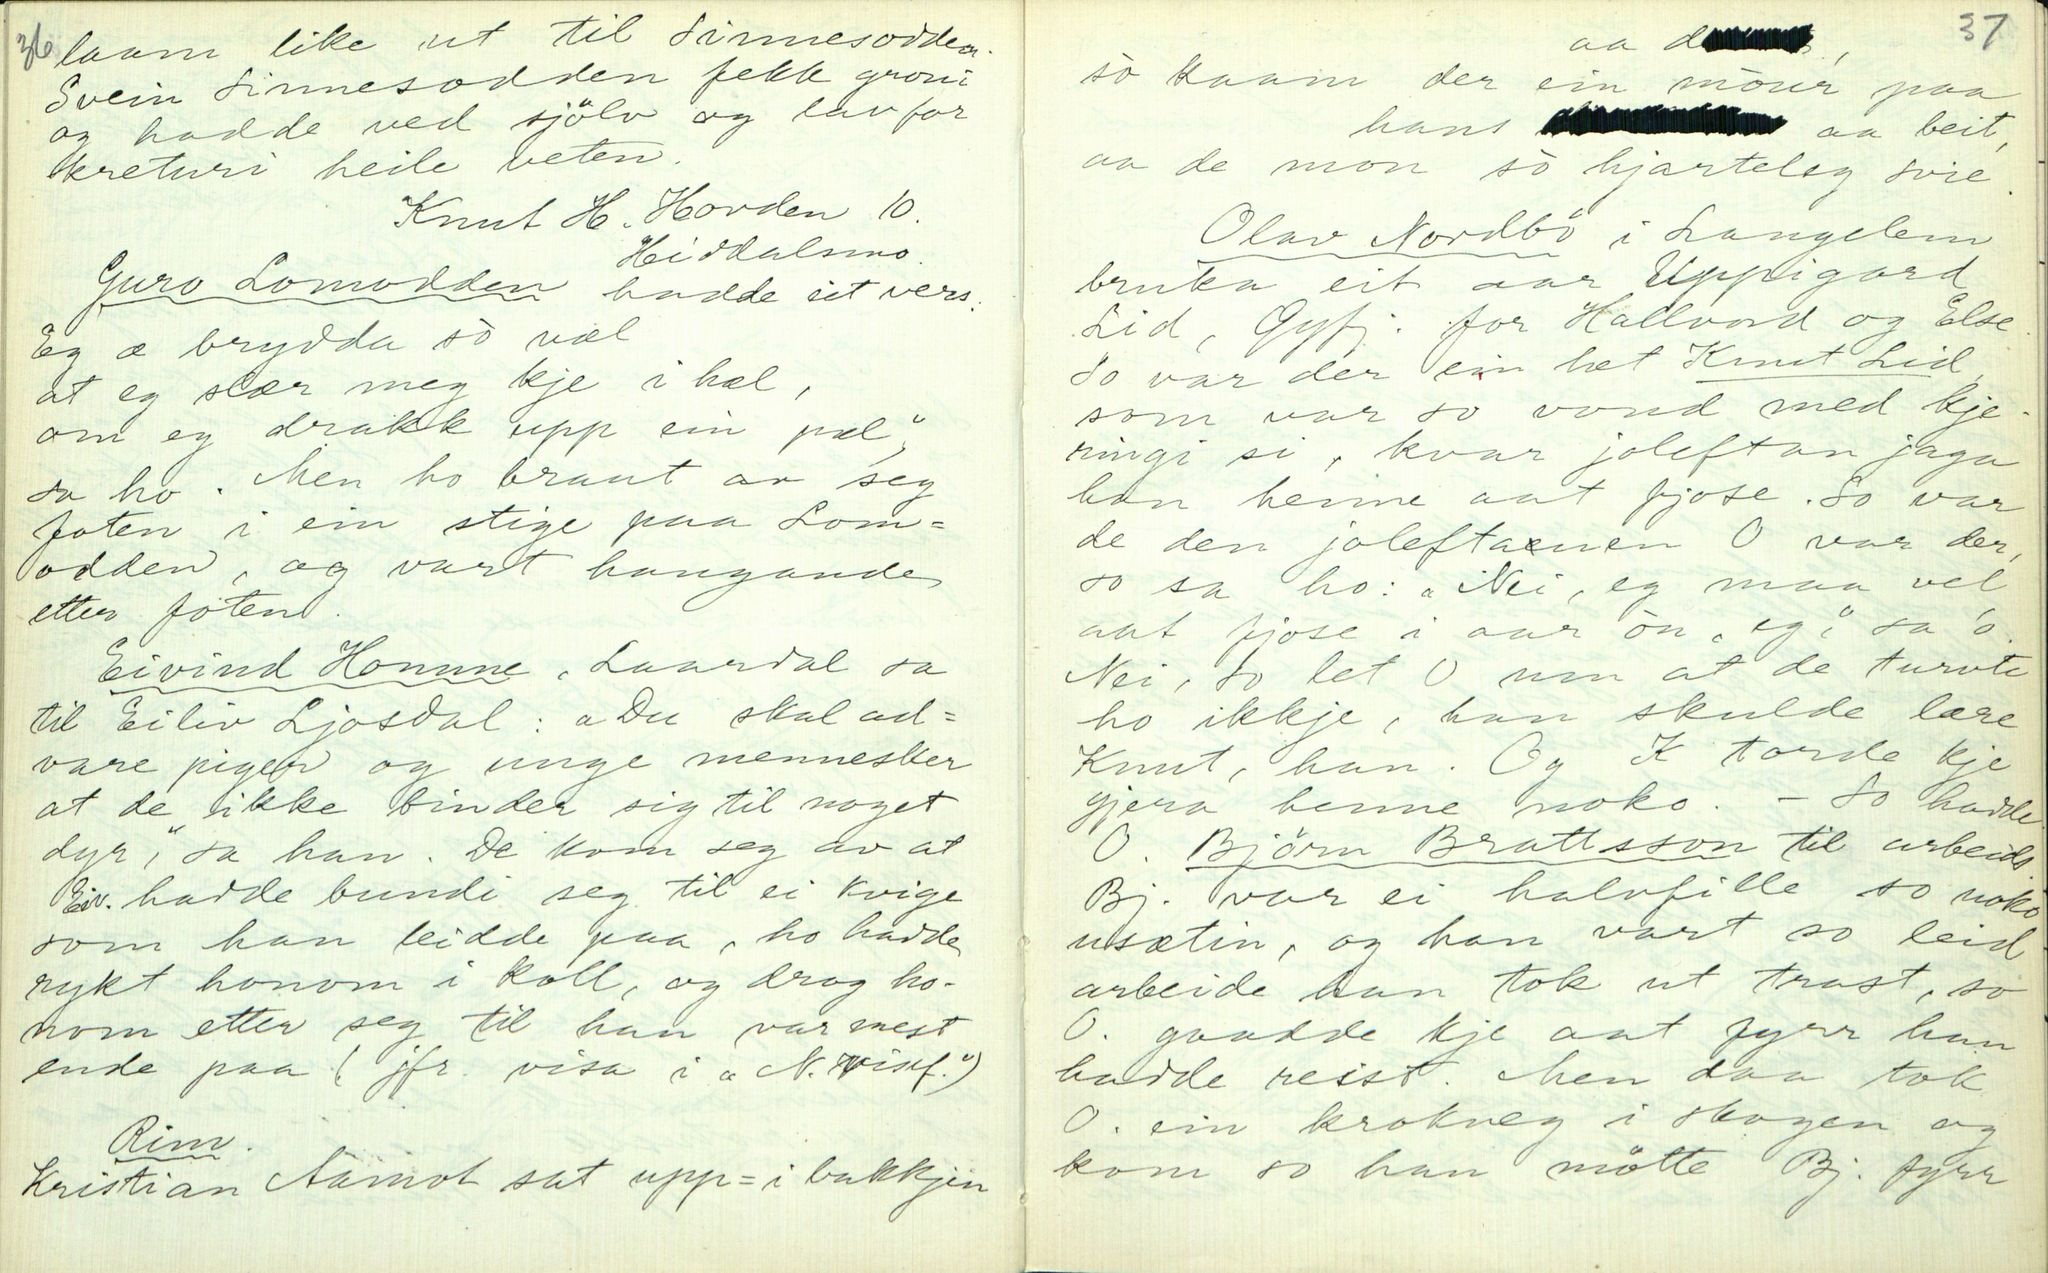 36
laam like ut til Sinnesodden.
Svein Sinnesodden fekk groni
og hadde ved sjölv og lav for
kreturi heile veten.
Knut H. Hovden 10.
Hiddalsmo.
Guro Lomodden hadde eit vers:
Eg æ brydda sò væl
at eg slær meg kje i hæl,
om eg drakk upp ein pæl",
sa ho. Men ho braut av seg
foten i ein stige paa Lom=
odden, og vart hangande
etter foten.
Eivind Homme, Laardal sa
til Eiliv Ljosdal: „Du skal ad=
vare piger og unge mennesker
at de ikke binder sig til noget
dyr," sa han. De kom seg av at
Eiv. hadde bundi seg til ei kvige
som han leidde paa, ho hadde
rykt honom i koll, og drog ho-
nom etter seg til han var mest
ende paa (jfr. visa i „N.
Rim.
Kristian Aamot sat upp=i bakkjen
37
aa
sò kaam der ein mòur paa
hans aa beit,
aa de mon sò hjarteleg svie.
Olav Nordbö i Langelem
bruka eit aar Uppigard
Lid, Gyfj. for Hallvord og Else.
So var der ein het Knut Lid,
som var so vond med kje-
ringi si, kvar joleftan jaga
han henne aat fjose. So var
de den joleftaenen O var der,
so sa ho: „Nei, eg maa vel
aat fjose i aar òn, eg," sa 'o.
Nei, so let O um at de turvte
ho ikkje, han skulde lære
Knut, han. Og K torde kje
gjera henne noko. – So hadde
O. Björn Brattsson til arbeids.
Bj. var ei halvfille so noko
usætin, og han vart so leid
arbeide han tok ut trast, so
O. gaadde kje aat fyrr han
hadde reist. Men daa tok
O. ein krokveg i skogen og
kom so han mötte Bj. fyrr